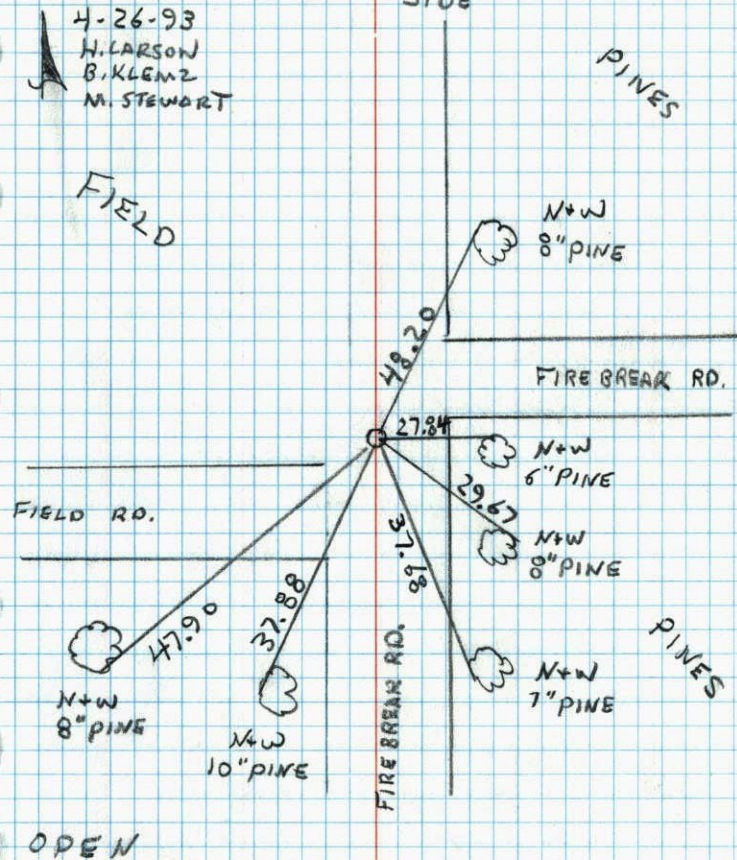 SIDE
4-26-93
H. LARSON
B. KLEMZ
M. STEWART
PINES
FIELD
N+W
8" PINE
48.20
FIRE BREAK RD.
27.84
N+W
6" PINE
29.67
FIELD RD.
N+W
8" PINE
37.89
37.88
47.90
PINES
N+W
7" PINE
N+W
8" PINE
N+W
10" PINE
FIRE BREAK RD.
OPEN